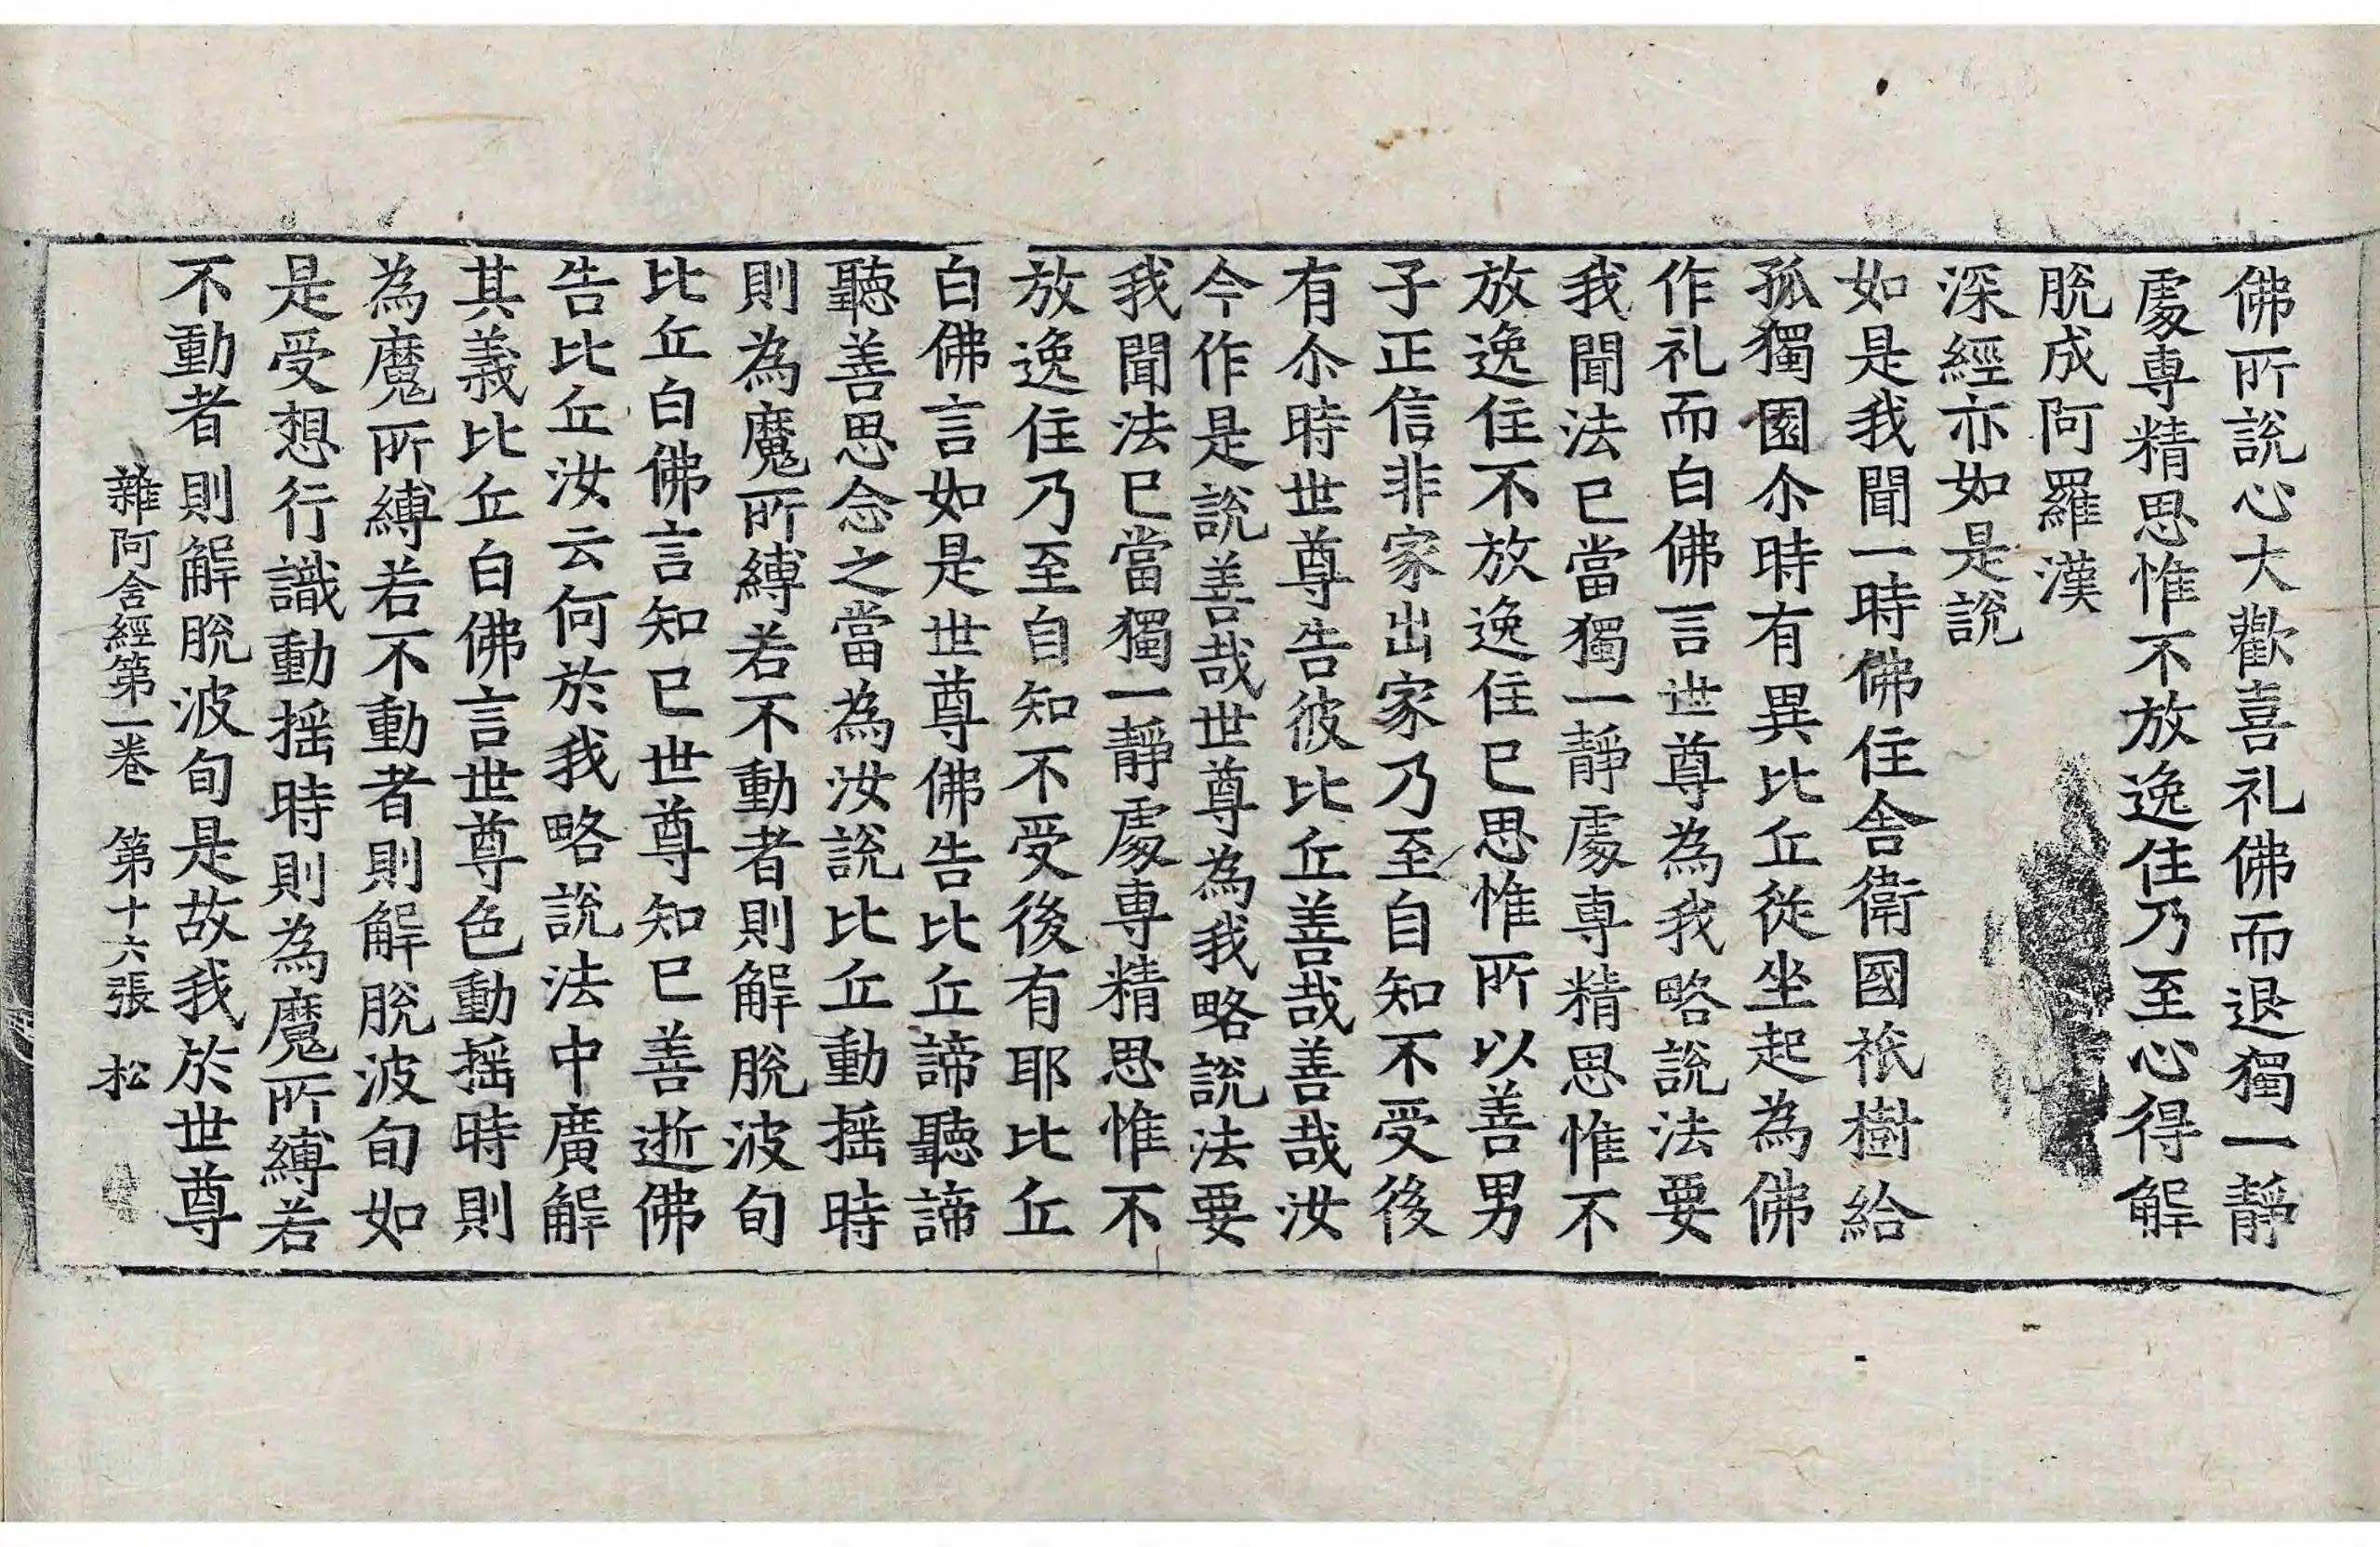 佛所說心大歡喜礼佛而退獨一靜
處専精思惟不放逸住乃至心得解
脫成阿羅漢
深經亦如是說
如是我聞一時佛住舍衛國祇樹給
孤獨園尒時有異比丘從坐起為佛
作礼而白佛言世尊為我略說法要
我聞法已當獨一靜處専精思惟不
放逸住不放逸住已思惟所以善男
子正信非家出家乃至自知不受後
有尒時世尊告彼比丘善哉善哉汝
今作是說善哉世尊為我略說法要
我聞法已當獨一靜處専精思惟不
放逸住乃至自知不受後有耶比丘
白佛言如是世尊佛告比丘諦聽諦
聽善思念之當為汝說比丘動揺時
則為魔所縛若不動者則解脫波旬
比丘白佛言知已世尊知已善逝佛
告比丘汝云何於我略說法中廣解
其義比丘白佛言世尊色動揺時則
為魔所縛若不動者則解脫波旬如
是受想行識動揺時則為魔所縛若
不動者則解脫波旬是故我於世尊
雜阿含經第一卷 第十六張 松